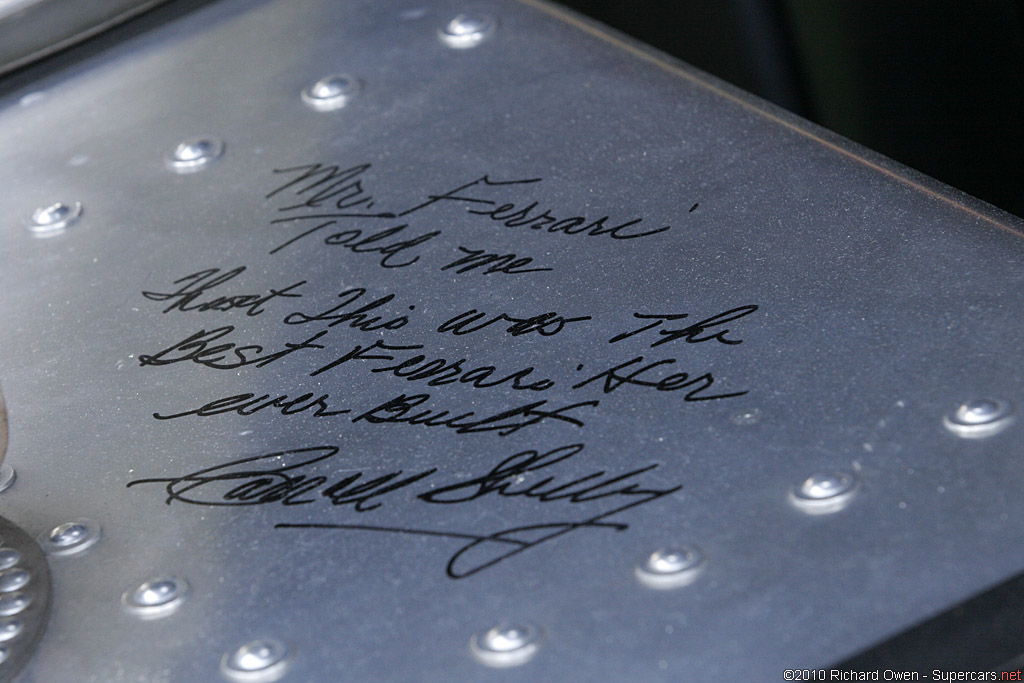 Mr. Ferrari
Told me
That This was The
Best Ferrari Her
ever Built
Carroll Shelby
©2010 Richard Owen - Supercars.net